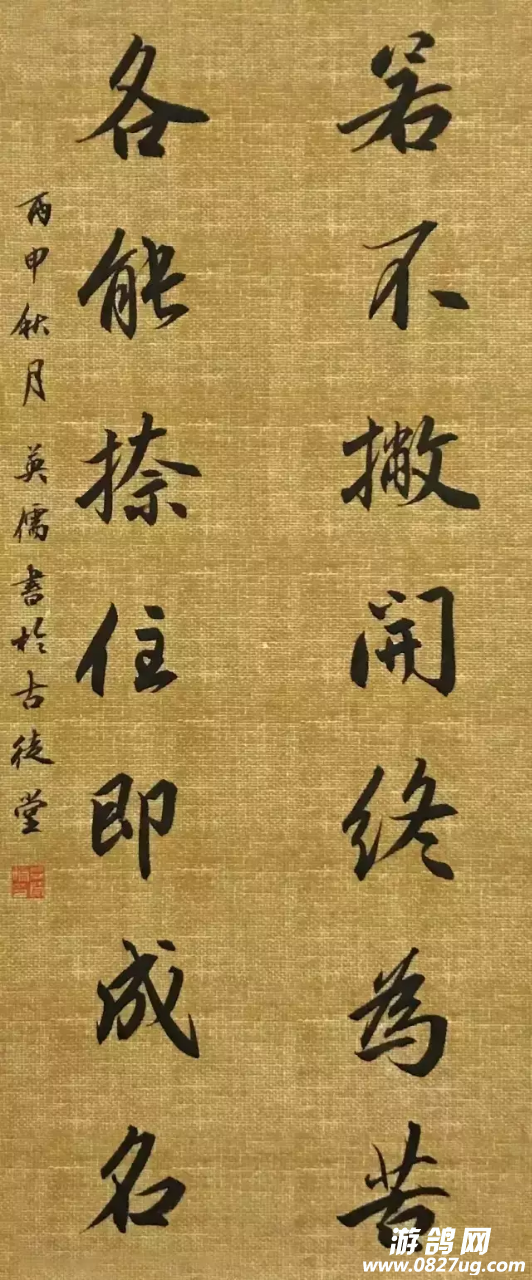 若不撇開终為苦
各能捺住即成名
丙申秋月英儒書於古徒堂
游鸽网
www.0827ug.com